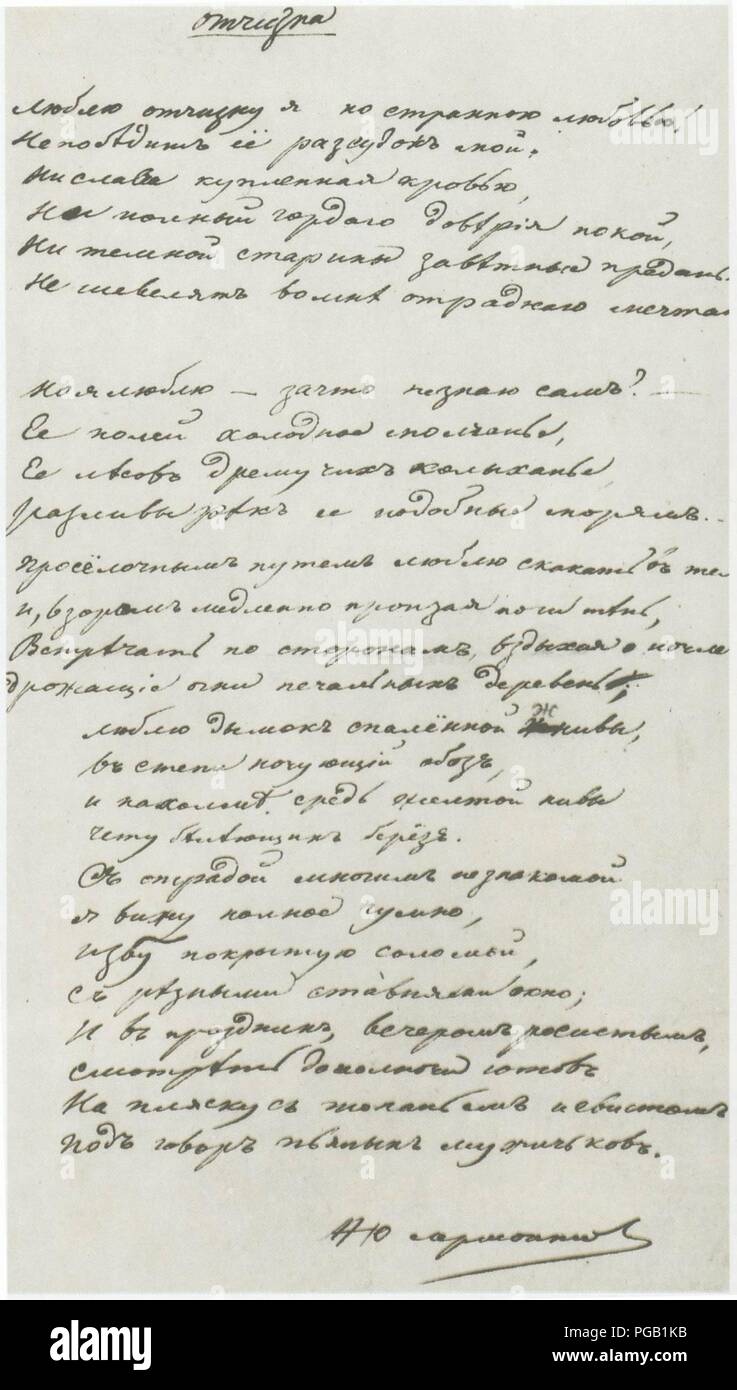 Отчизна
Люблю отчизну я но странною любовью!
Непобѣдитъ её разсудокъ мой.
Ни слава купленная кровью,
Ни полный гордаго довѣрія покой,
Ни темной старины завѣтные предань
Не шевелятъ во мнѣ отраднаго мечта
Но я люблю — за что не знаю самъ? —
Ее полей холодное молчанье,
Ее лѣсовъ дремучихъ колыханье
Разливы рѣкъ ее подобные морямъ..
Просёлочнымъ путемъ люблю скакать въ те
и, взоромъ медленно пронзая ночи тѣнь,
Встрѣчать по сторонамъ, вздыхая о ночле
Дрожащіе огни печальныхъ деревень;
Люблю дымокъ спалённой жнивы,
въ степи ночующій обозъ,
и на холмѣ средь желтой нивы
чету бѣлѣющихъ берёзъ.
Съ отрадой многимъ незнакомой
я вижу полное гумно,
избу покрытую соломой,
съ рѣзными ставнями окно;
и въ праздникъ, вечеромъ росистымъ,
смотрѣть до полночи готовъ
на пляску съ топаньемъ и свистомъ
подъ говоръ пьяныхъ мужичковъ.
М Ю Лермонтов
alamy
alamy
alamy
alamy
PGB1KB
www.alamy.com